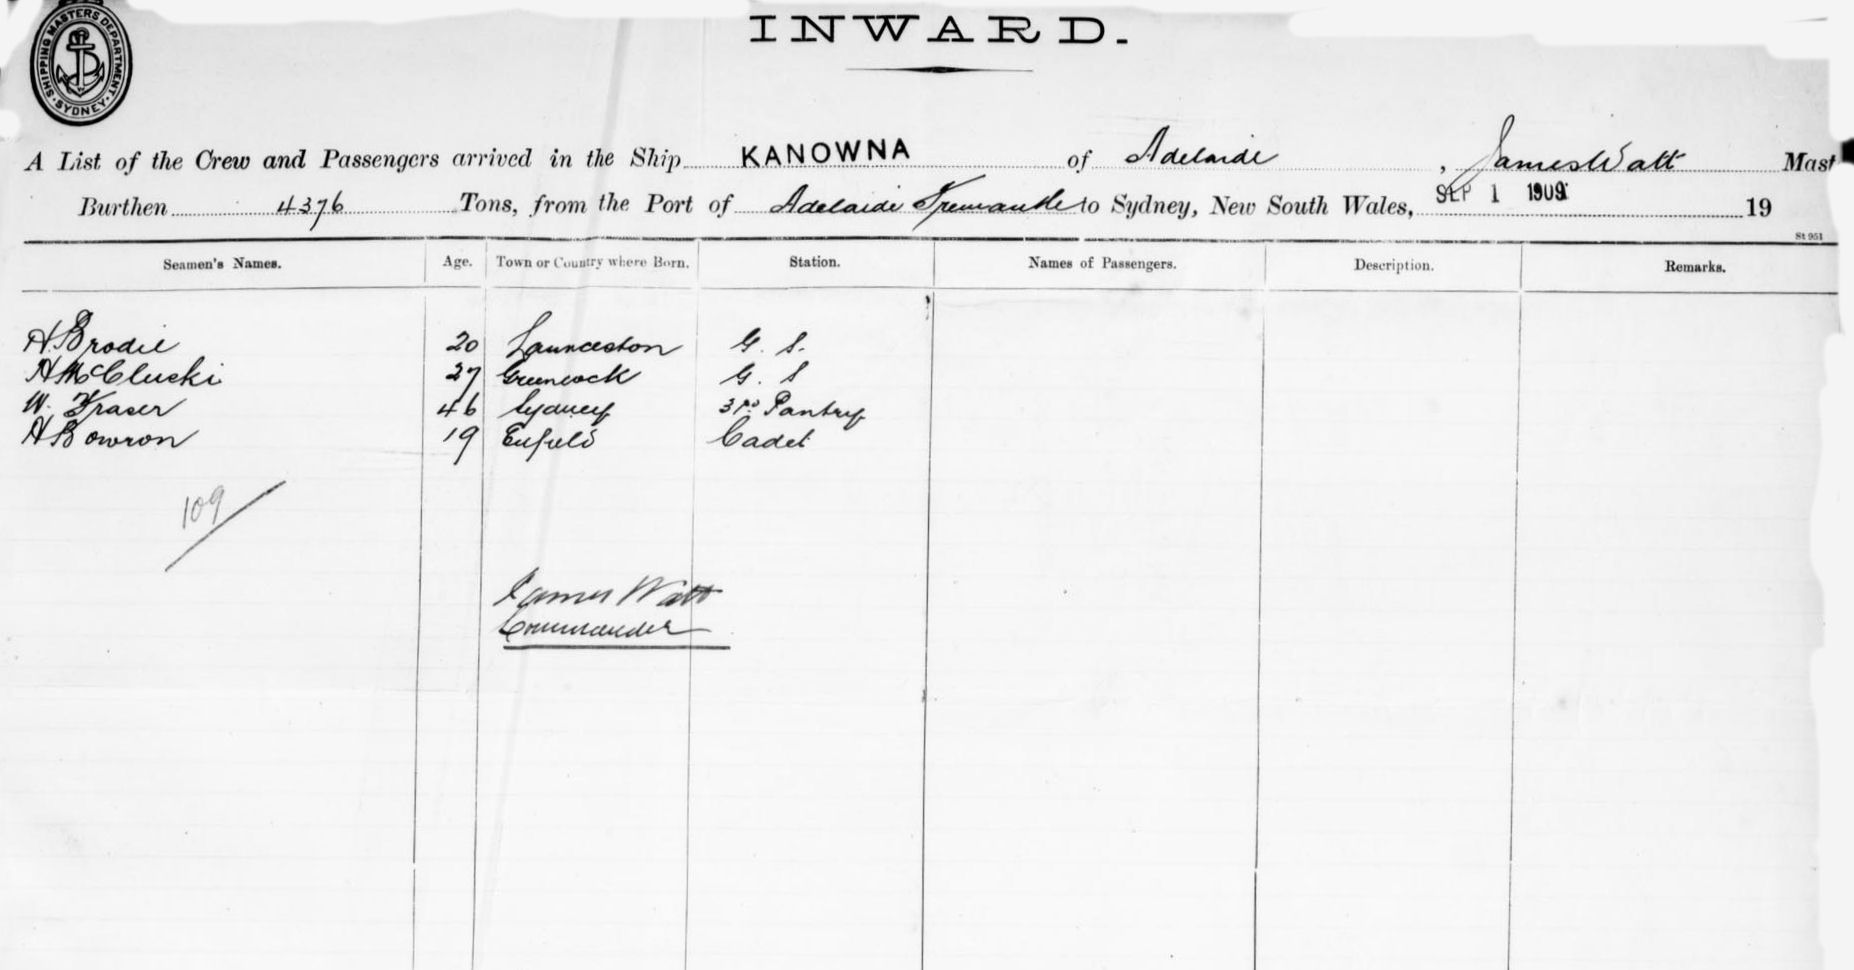 SHIPPING MASTERS DEPARTMENT. SYDNEY.
INWARD.
A List of the Crew and Passengers arrived in the Ship KANOWNA of Adelaide, James Watt Mast
Burthen 4376 Tons, from the Port of Adelaide Fremantle to Sydney, New South Wales, SEP 1 1909 19
St 951
Seamen's Names. Age. Town or Country where Born. Station. Names of Passengers. Description. Remarks.
H Brodie 20 Launceston G. S.
H McCluski 27 Greenock G. S
W. Fraser 46 Sydney 3rd Pantry
H Bowron 19 Enfield Cadet
109
James Watt
Commander